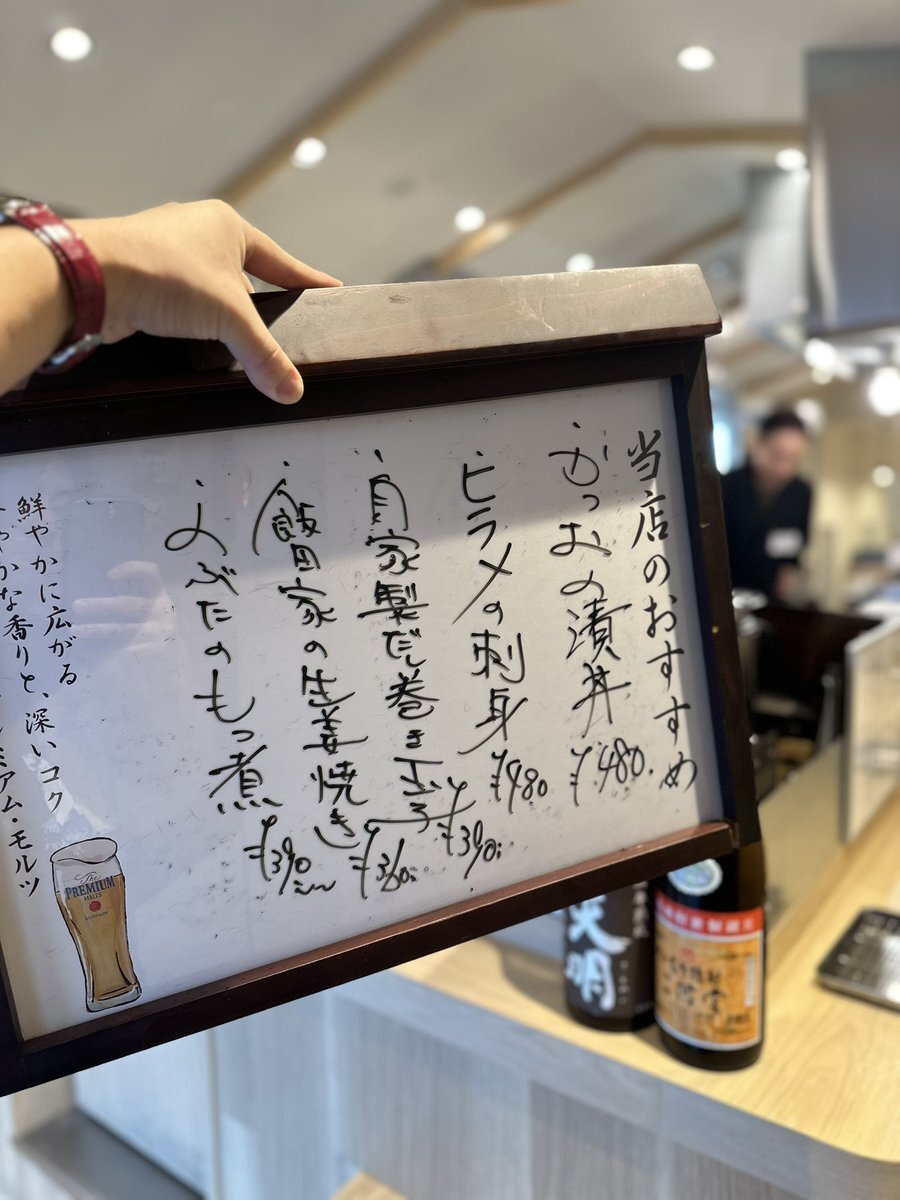 当店のおすすめ
・かつおの漬丼 ¥480.
・ヒラメの刺身 ¥980
・自家製だし巻き玉子 ¥390.
・飯田家の生姜焼き ¥360.
・よぶたのもつ煮 ¥390
鮮やかに広がる
やかな香りと、深いコク
アム・モルツ
The
PREMIUM
MALT'S
SUNTORY
天明